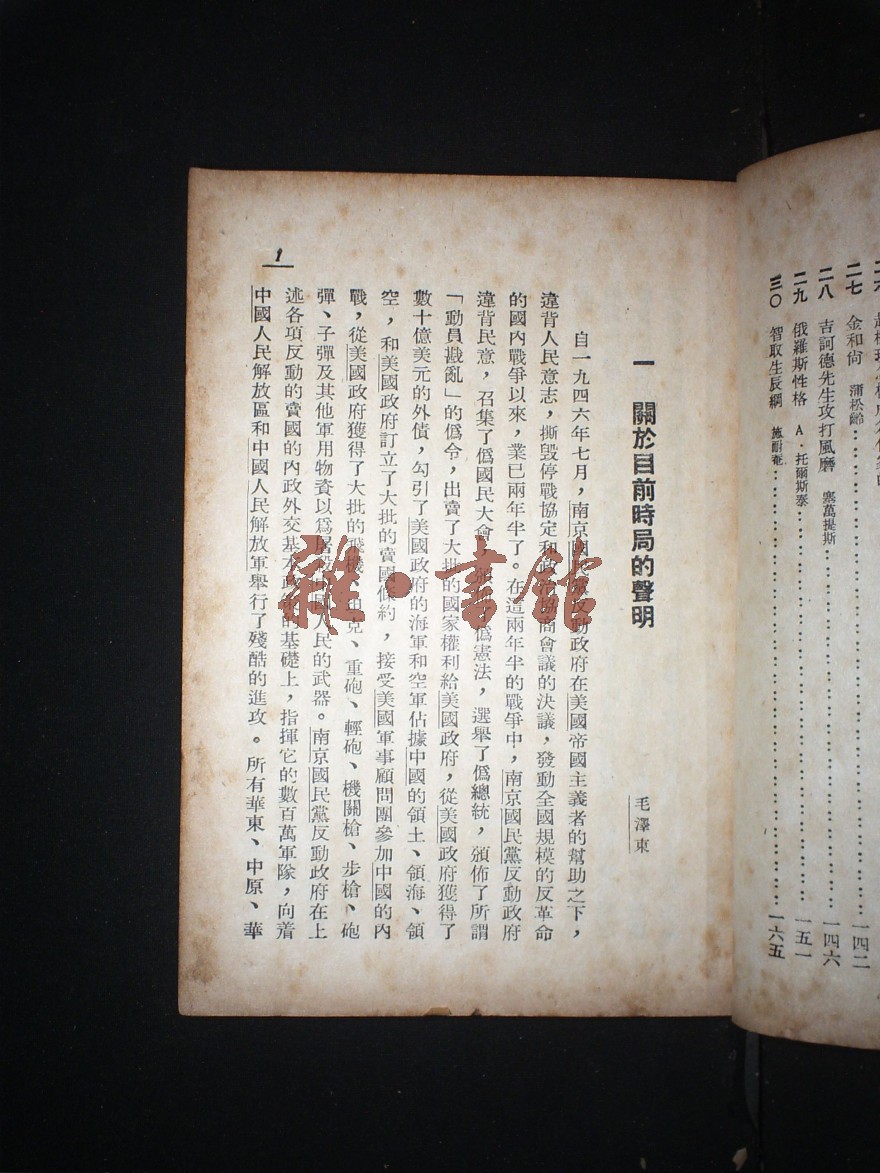 二七 金和尚 蒲松齡 一四二
二八 吉訶德先生攻打風磨 塞萬提斯 一四六
二九 俄羅斯性格 A·托爾斯泰 一五一
三〇 智取生辰綱 施耐菴 一六五
一 關於目前時局的聲明
毛澤東
自一九四六年七月，南京國民黨反動政府在美國帝國主義者的幫助之下，
違背人民意志，撕毀停戰協定和政治協商會議的決議，發動全國規模的反革命
的國內戰爭以來，業已兩年半了。在這兩年半的戰爭中，南京國民黨反動政府
違背民意，召集了僞國民大會，頒佈了僞憲法，選舉了僞總統，頒佈了所謂
「動員戡亂」的僞令，出賣了大批的國家權利給美國政府，從美國政府獲得了
數十億美元的外債，勾引了美國政府的海軍和空軍佔據中國的領土、領海、領
空，和美國政府訂立了大批的賣國條約，接受美國軍事顧問團參加中國的內
戰，從美國政府獲得了大批的飛機、坦克、重砲、輕砲、機關槍、步槍、砲
彈、子彈及其他軍用物資以爲屠殺中國人民的武器。南京國民黨反動政府在上
述各項反動的賣國的內政外交基本政策的基礎上，指揮它的數百萬軍隊，向着
中國人民解放區和中國人民解放軍舉行了殘酷的進攻。所有華東、中原、華
1
雜·書館